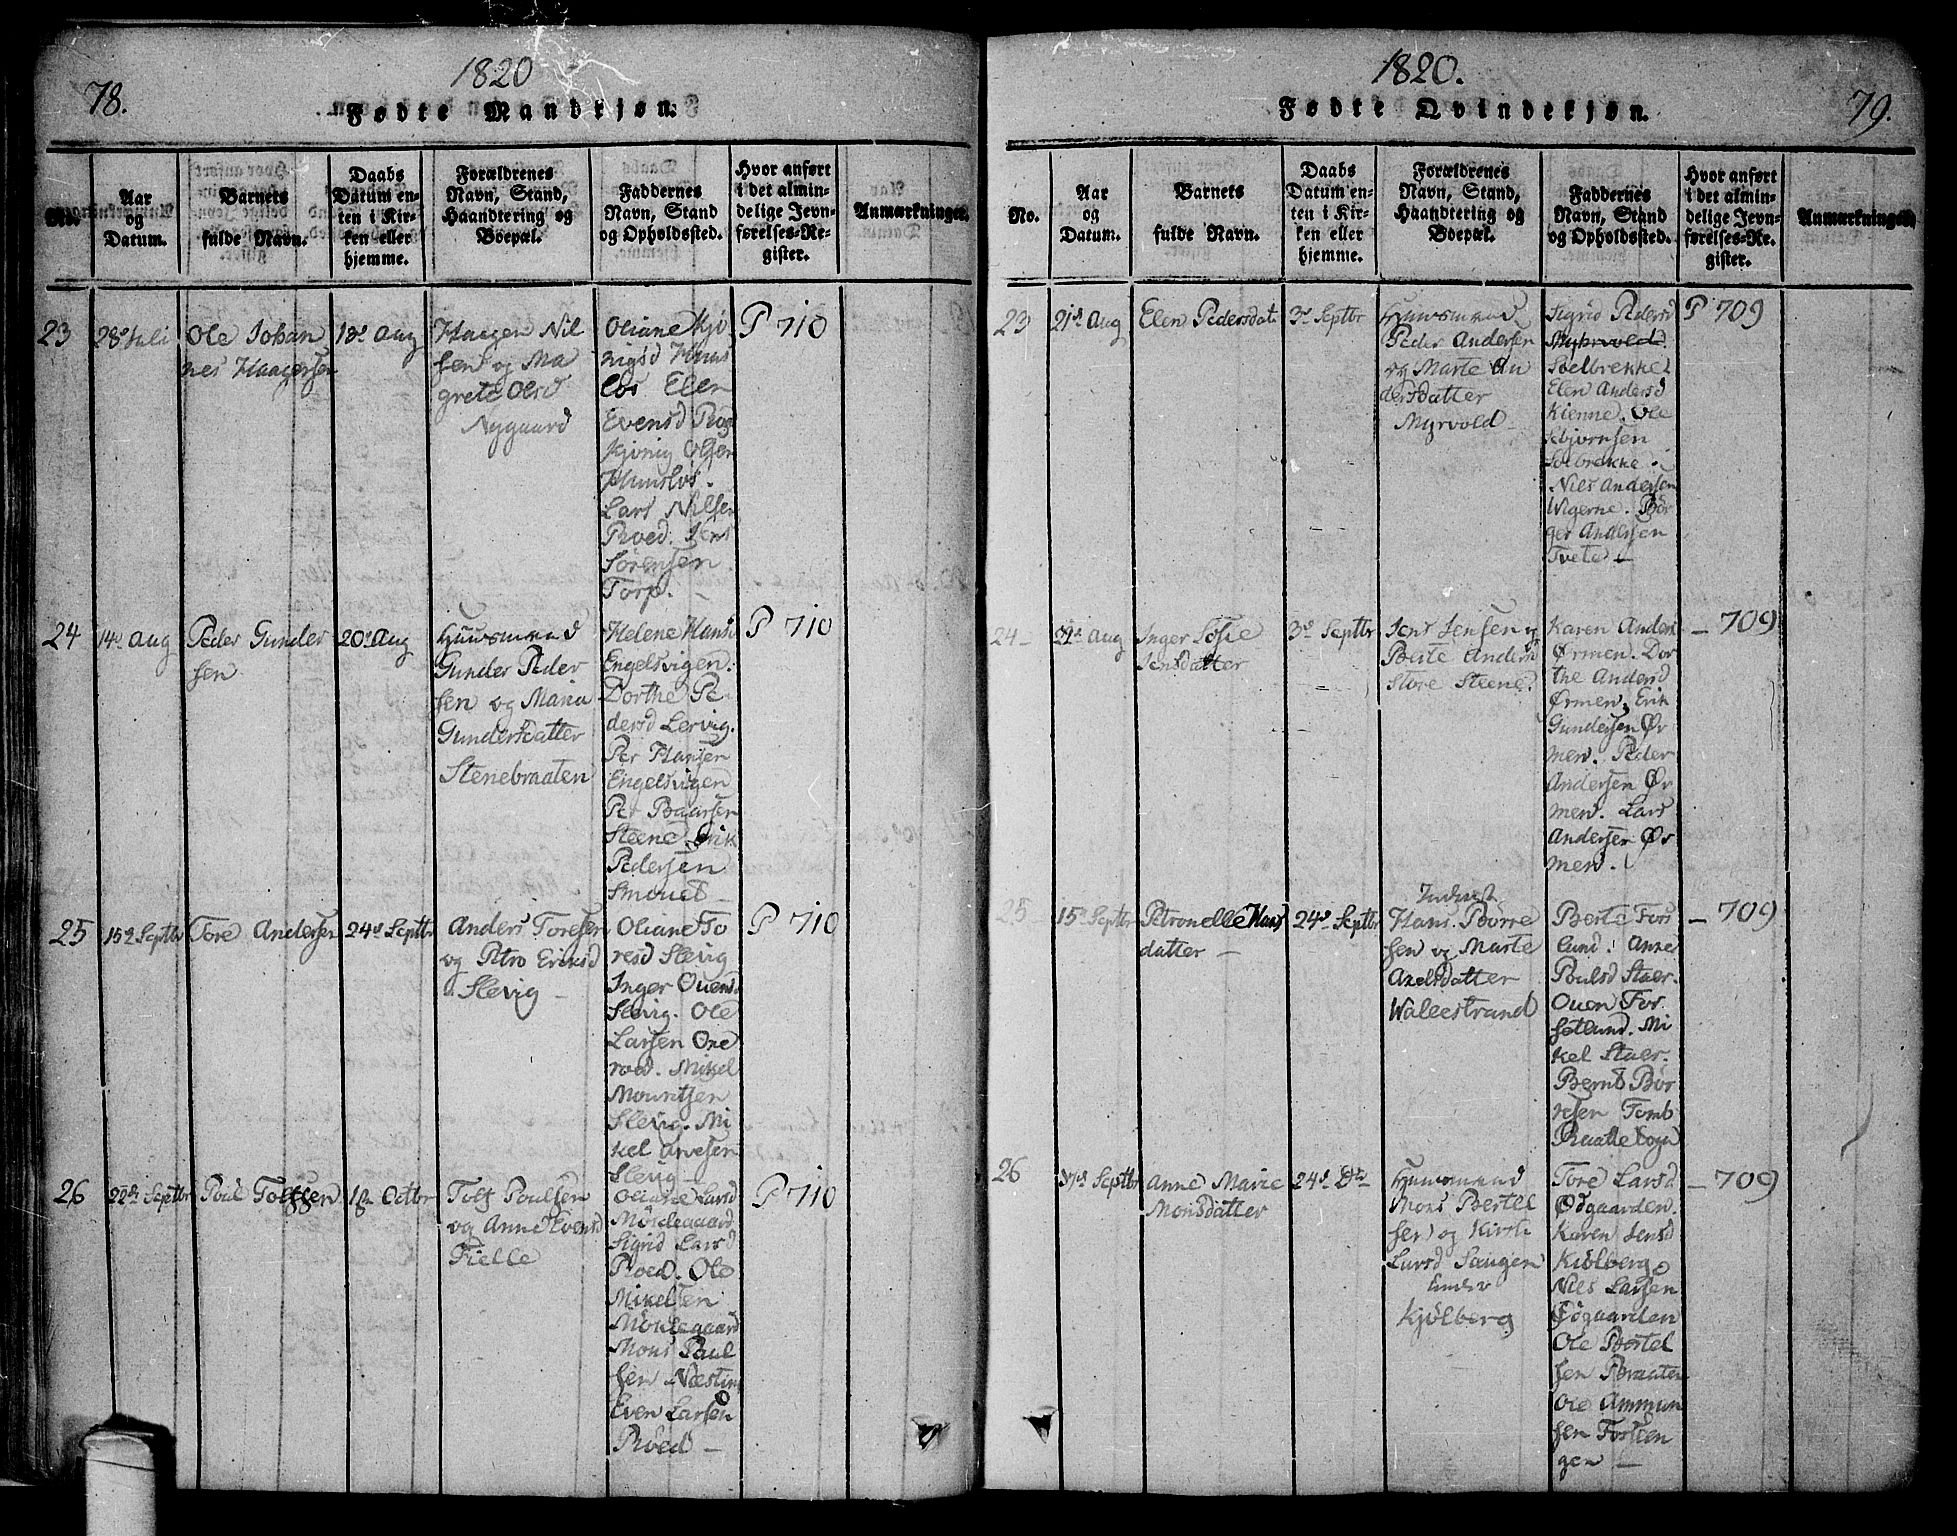 78.
1820
Fødte Mandkjøn.
No.
Aar
og
Datum.
Barnets
fulde Navn.
Daabs
Datum en-
ten i Kir-
ken eller
hjemme.
Forældrenes
Navn, Stand,
Haandtering og
Boepæl.
Faddernes
Navn, Stand
og Opholdssted.
Hvor anført
i det almin-
delige Jevn-
førelses-Re-
gister.
Anmærkninger.
23
28de Juli
Ole Johan
nes Haagensen
13de Aug
Haagen Nil
sen og Ma
grete Olsd
Nygaard
Oliane Kjø
nigsd Huns
løs Elen
Evensd Rog
Kjønig Olsen
Hunsløs.
Lars Nilsen
Roed. Jens
Sørensen
Torp. —
P 710
24
14de Aug
Peder Gunder
sen
20de Aug
Huusmand
Gunder Peder
sen og Maria
Gundersdatter
Stenebraaten
Helene Hansd
Engelsvigen.
Dorthe Pe-
dersd Lervig.
Per Hansen
Engelsvigen
Per Baarsen
Steene Erik
Pedersen
Smouet —
P 710
25
15de Septbr
Tore Andersen
24de Septbr
Anders Toresen
og Petro Eriksd
Slevig —
Oliane To
resd Slevig
Inger Ouensd
Slevig. Ole
Larsen One
roed. Mikkel
Mouritsen
Slevig. Mi
kel Arvesen
Slevig —
P 710
26
22de Septbr
Poul Tolfsen
1ste Octbr
Tolf Poulsen
og Anne Evensd
Fielle
Oliane Larsd
Møklegaard
Sigrid Larsd
Roed. Ole
Mikelsen
Møklegaard
Mons Paul
sen Næstin
Even Larsen
Roed —
P 710
1820.
79.
Fødte Qvindekjøn.
No.
Aar
og
Datum.
Barnets
fulde Navn.
Daabs
Datum en-
ten i Kir-
ken eller
hjemme.
Forældrenes
Navn, Stand,
Haandtering og
Boepæl.
Faddernes
Navn, Stand
og Opholdssted.
Hvor anført
i det almin-
delige Jevn-
førelses-Re-
gister.
Anmærkninger.
23
21de Aug
Elen Pedersdat
3de Septbr
Huusmand
Peder Andersen
og Marte An
dersdatter
Myrvold —
Sigrid Pedersd
Myhrvold
Solbrekke
Elen Andersd
Kienne. Ole
Asbjørnsen
Solbrekke.
Niels Andersen
Wigerne. Bør
ger Andersen
Tveta —
P 709
24
Aug
Inger Sofie
Jensdatter
3de Septbr
Jens Jensen og
Berte Andersd
Store Steene.
Karen Andersd
Ørmen. Dor
the Andersd
Ørmen. Erik
Gundersen Ør
men. Peder
Andersen Ør
men. Lars
Andersen Ør
men.
— 709
25
15de Septbr
Petronelle Hans
datter —
24de Septbr
Inderst
Hans Børre
sen og Marte
Axelsdatter
Walestrand
Berte Fors
lund. Anne
Poulsd Staer.
Ouen For
setlund. Mi
kel Staer.
Bernt Bør
resen Tomb
Raade Sogn
— 709
26
17de Septbr
Anne Marie
Monsdatter
24de Do
Huusmand
Mons Bertel
sen og Kirsti
Larsd Saugen
under
Kjølberg
Tore Larsd
Ødgaarden.
Karen Jensd
Kiølberg
Niels Larsen
Ødgaarden
Ole Bertel
sen Braaten
Ole Ammun
sen Torsten
gen —
— 709